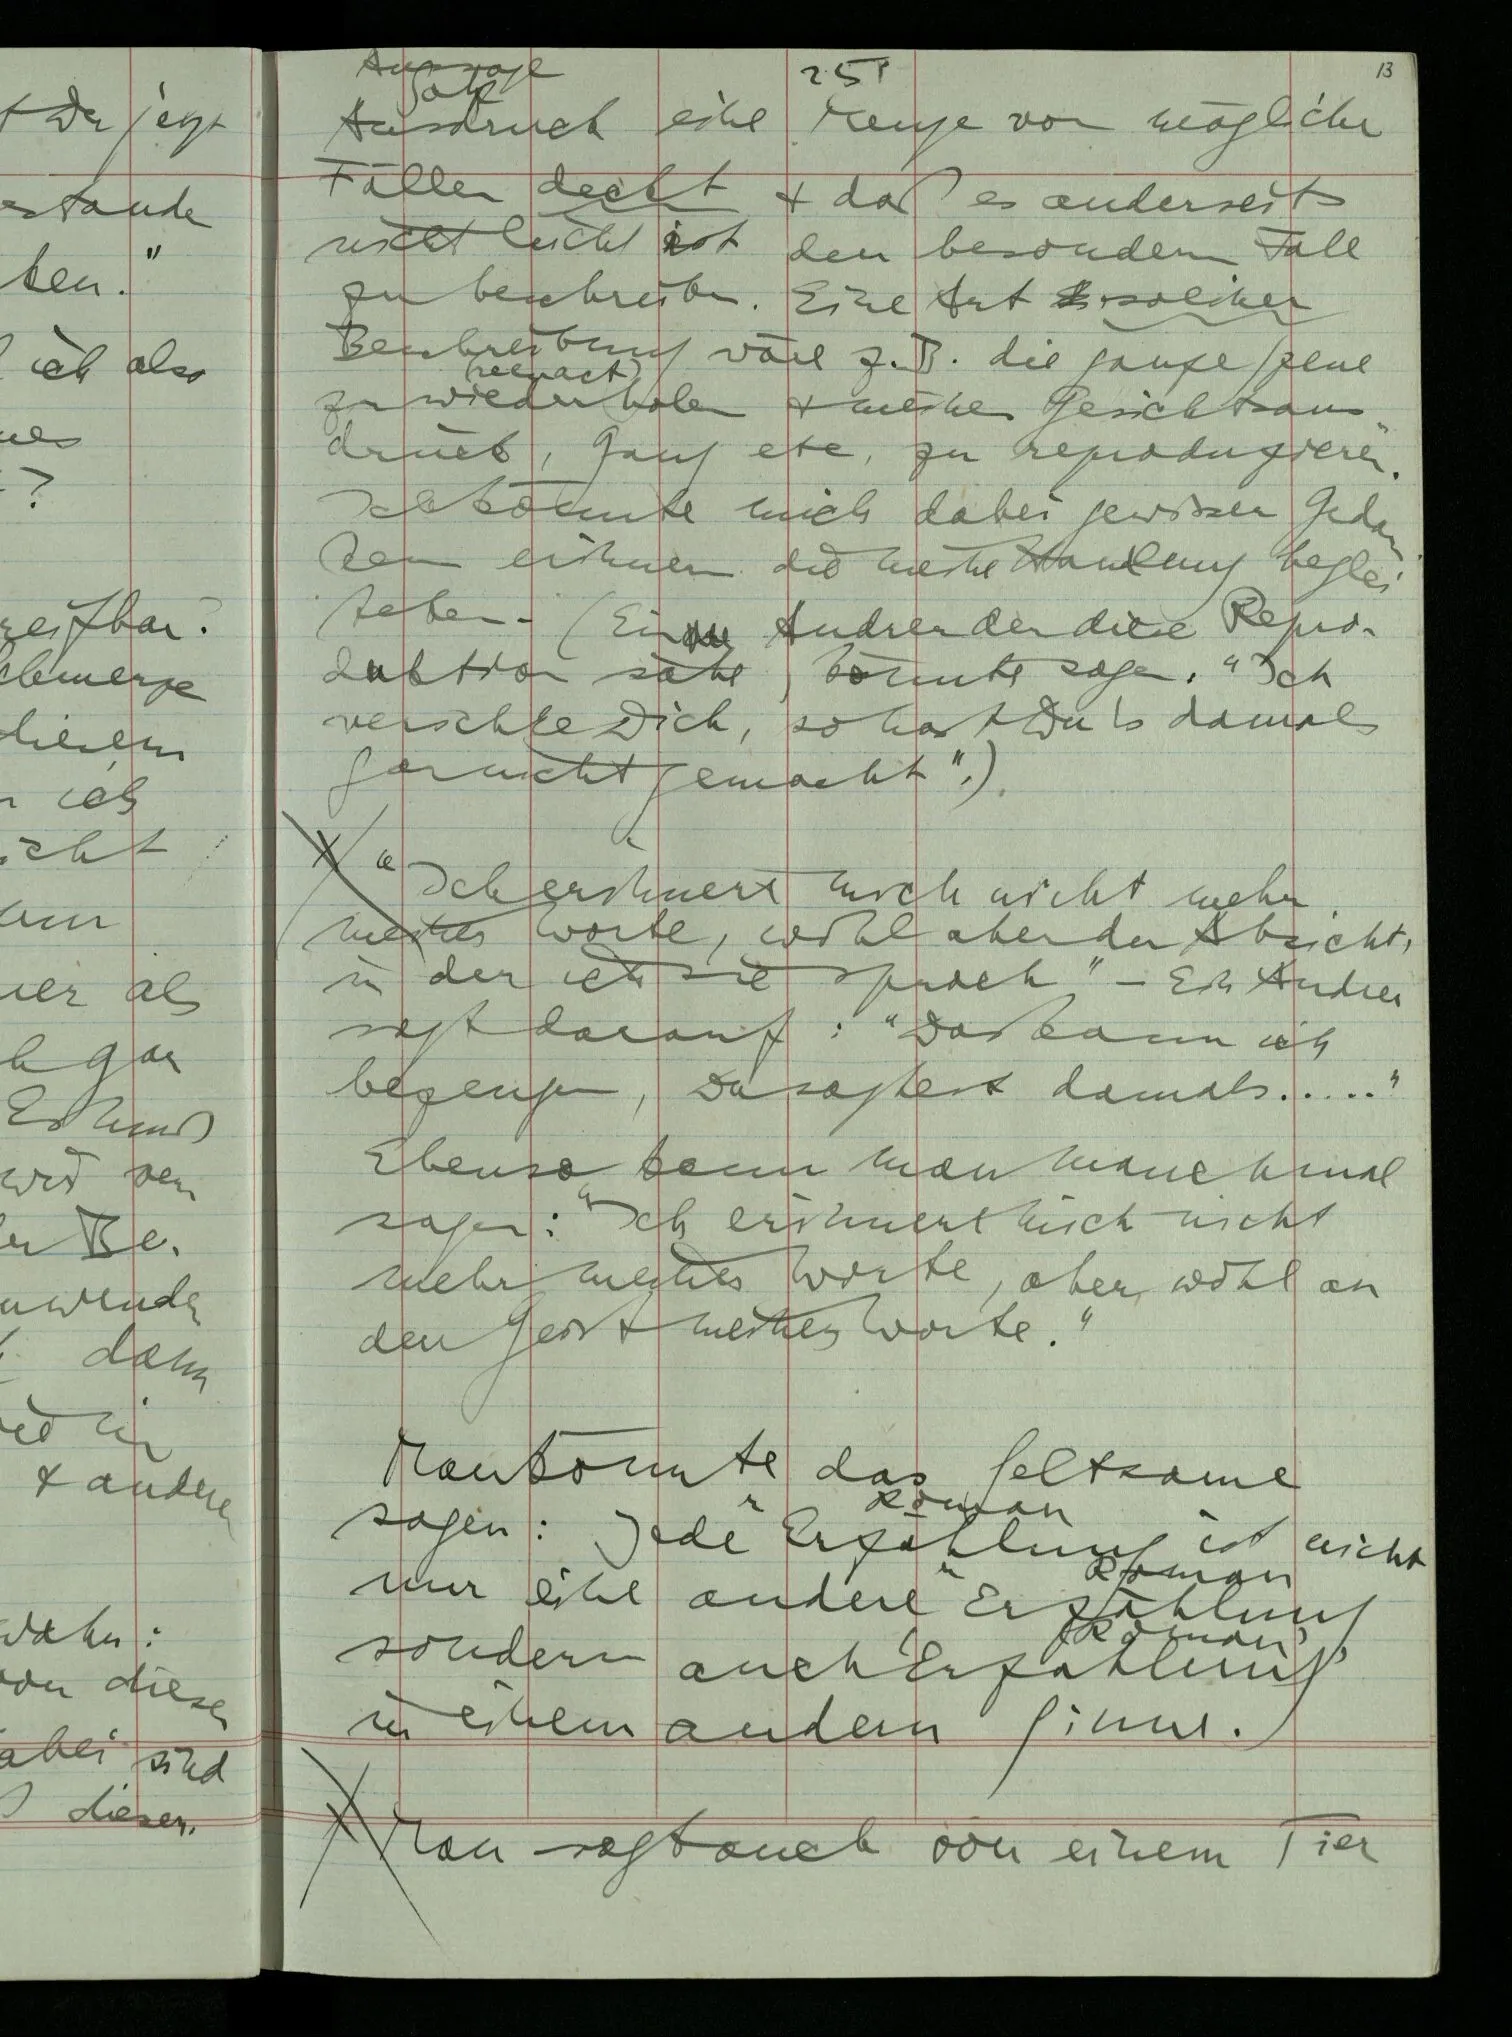 t Du jetzt
estande
ken."
ich also
nes
?
reifbar?
chmerze
diesem
ich
icht
er als
gar
Es muß
wir von
er Be-
nwende
dann
& andere
wahr:
von dieser
abei sind
dieser.
13
251
Aussage
Satz
Ausdruck eine Menge von möglicher
Fällen deckt & daß es anderseits
nicht leicht ist den besondern Fall
zu beschreiben. Eine Art solcher
Beschreibung wäre z.B. die ganze Szene
(reenact)
zu wiederholen & meinen Gesichtsaus
druck, Gang etc, zu reproduzieren.
Ich könnte mich dabei gewisser Gedan
ken erinnern die meine Handlung beglei
teten. (Ein Andrer der diese Repro-
duktion sähe, könnte sagen. "Ich
verstehe Dich, so hast Du's damals
garnicht gemacht".)
"Ich erinnere mich nicht mehr
meiner Worte, wohl aber der Absicht,
in der ich sie sprach" – Ein Andrer
sagt darauf: "Das kann ich
bezeugen, Du sagtest damals....."
Ebenso kann man manchmal
sagen: "Ich erinnere mich nicht
mehr meiner Worte, aber wohl an
den Geist meiner Worte."
Man könnte das Seltsame
Roman
sagen: Jede Erzählung ist nicht
Roman
nur eine andere Erzählung
'Roman'
sondern auch 'Erzählung'
in einem andern Sinne.
Man sagt auch von einem Tier